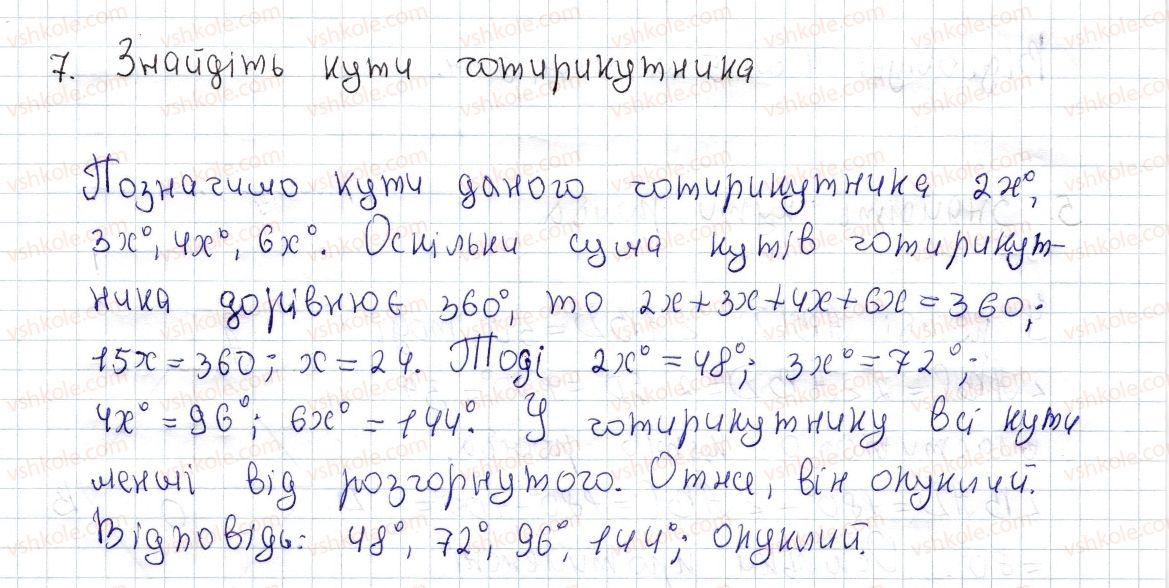 7. Знайдіть кути чотирикутника
Позначимо кути даного чотирикутника 2x°,
3x°, 4x°, 6x°. Оскільки сума кутів чотирикут-
ника дорівнює 360°, то 2x+3x+4x+6x=360;
15x=360; x=24. Тоді 2x°=48°; 3x°=72°;
4x°=96°; 6x°=144°. У чотирикутнику всі кути
менші від розгорнутого. Отже, він опуклий.
Відповідь: 48°, 72°, 96°, 144°; опуклий.